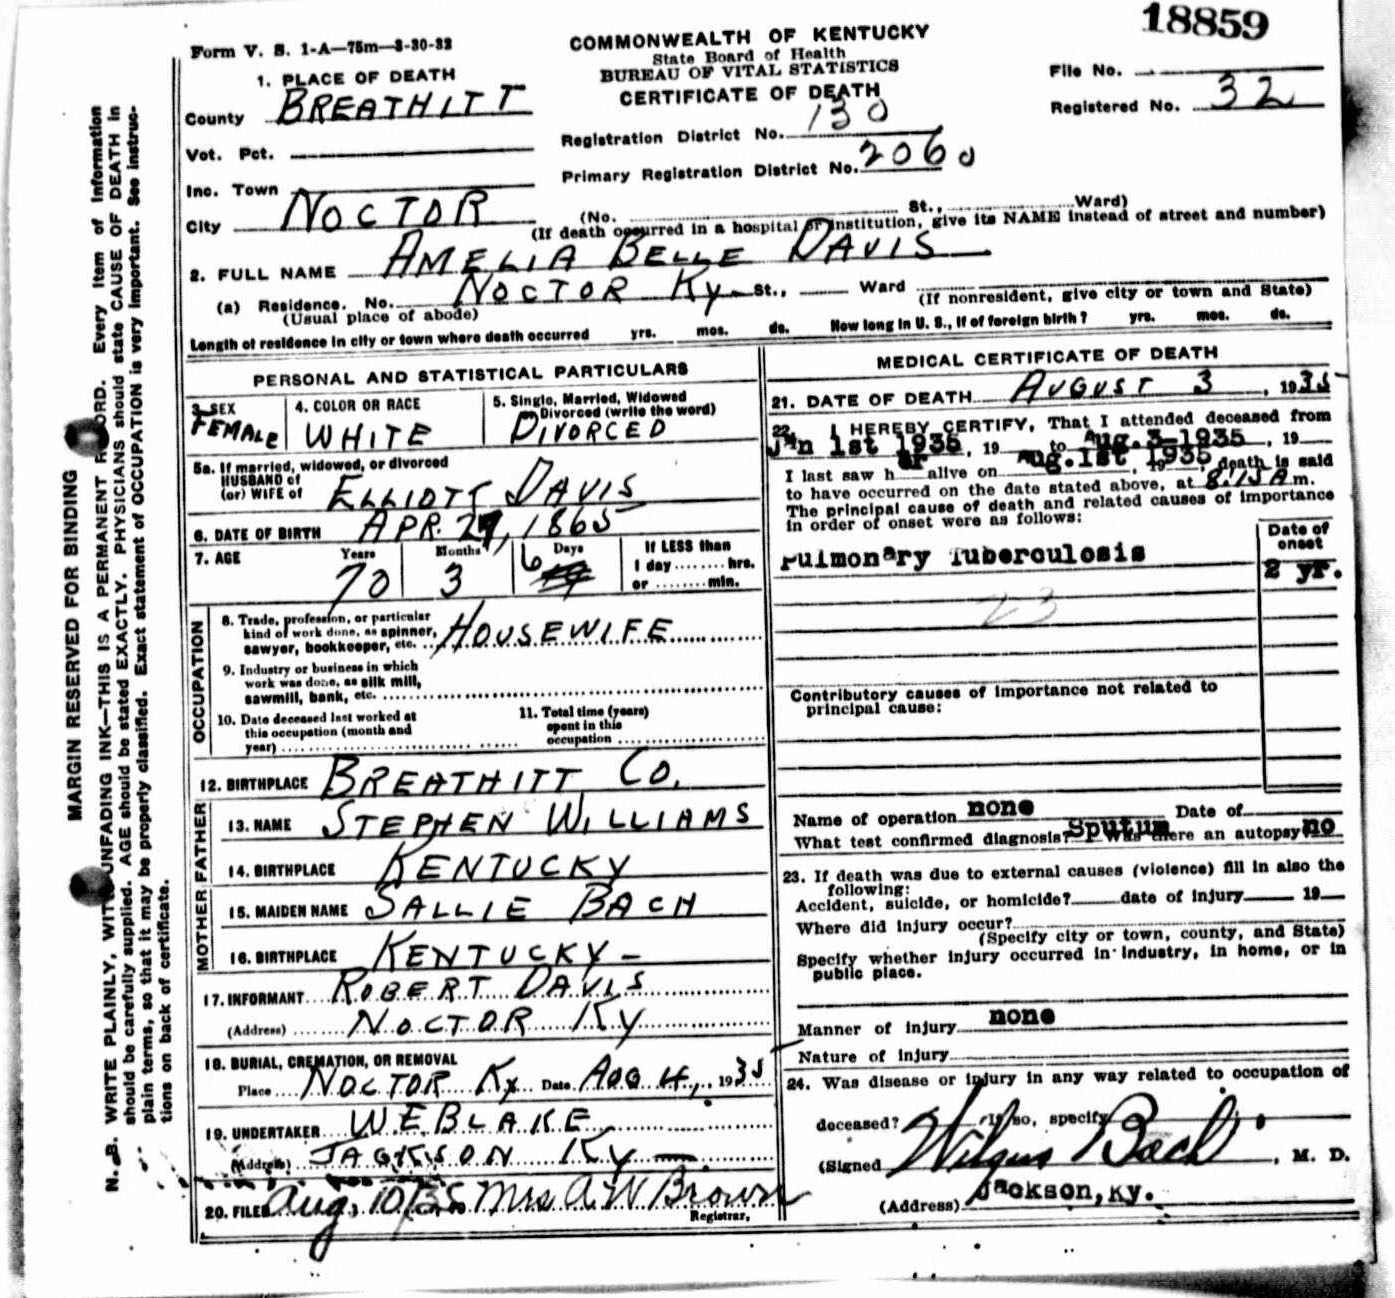 18859
Form V. S. 1-A—75m—3-30-32
COMMONWEALTH OF KENTUCKY
State Board of Health
BUREAU OF VITAL STATISTICS
CERTIFICATE OF DEATH
File No.
Registered No. 32
1. PLACE OF DEATH
County BREATHITT
Registration District No. 130
Vot. Pct.
Primary Registration District No. 2060
Inc. Town
City NOCTOR (No. St., Ward)
(If death occurred in a hospital or institution, give its NAME instead of street and number)
2. FULL NAME AMELIA BELLE DAVIS
(a) Residence. No. NOCTOR Ky St., Ward
(Usual place of abode) (If nonresident, give city or town and State)
Length of residence in city or town where death occurred yrs. mos. ds. How long in U. S., if of foreign birth? yrs. mos. ds.
PERSONAL AND STATISTICAL PARTICULARS
3. SEX FEMALE
4. COLOR OR RACE WHITE
5. Single, Married, Widowed
or Divorced (write the word)
DIVORCED
5a. If married, widowed, or divorced
HUSBAND of
(or) WIFE of ELLIOTT DAVIS
6. DATE OF BIRTH APR. 27, 1865
7. AGE Years 70 Months 3 Days 6 If LESS than
1 day ........ hrs.
or ........ min.
OCCUPATION
8. Trade, profession, or particular
kind of work done, as spinner,
sawyer, bookkeeper, etc. HOUSEWIFE
9. Industry or business in which
work was done, as silk mill,
sawmill, bank, etc.
10. Date deceased last worked at
this occupation (month and
year)
11. Total time (years)
spent in this
occupation
12. BIRTHPLACE BREATHITT CO.
FATHER
13. NAME STEPHEN WILLIAMS
14. BIRTHPLACE KENTUCKY
MOTHER
15. MAIDEN NAME SALLIE BACH
16. BIRTHPLACE KENTUCKY—
17. INFORMANT ROBERT DAVIS
(Address) NOCTOR Ky
18. BURIAL, CREMATION, OR REMOVAL
Place NOCTOR Ky Date AUG 4, 1935
19. UNDERTAKER W E BLAKE
(Address) JACKSON Ky
20. FILED Aug, 10/35 Mrs A W Brown
Registrar.
MEDICAL CERTIFICATE OF DEATH
21. DATE OF DEATH AUGUST 3, 1935
22. I HEREBY CERTIFY, That I attended deceased from
Jan 1st 1935, 19 to Aug.3-1935, 19
I last saw her alive on Aug.1st 1935, 19, death is said
to have occurred on the date stated above, at 8:15 A m.
The principal cause of death and related causes of importance
in order of onset were as follows:
Date of
onset
Pulmonary Tuberculosis 2 yr.
23
Contributory causes of importance not related to
principal cause:
Name of operation none Date of
What test confirmed diagnosis? Sputum Was there an autopsy no
23. If death was due to external causes (violence) fill in also the
following:
Accident, suicide, or homicide? date of injury 19
Where did injury occur?
(Specify city or town, county, and State)
Specify whether injury occurred in industry, in home, or in
public place.
Manner of injury none
Nature of injury
24. Was disease or injury in any way related to occupation of
deceased? If so, specify
(Signed Wilgus Bach, M. D.
(Address) Jackson, Ky.
MARGIN RESERVED FOR BINDING
N. B. WRITE PLAINLY, WITH UNFADING INK—THIS IS A PERMANENT RECORD. Every item of information
should be carefully supplied. AGE should be stated EXACTLY. PHYSICIANS should state CAUSE OF DEATH in
plain terms, so that it may be properly classified. Exact statement of OCCUPATION is very important. See instruc-
tions on back of certificate.